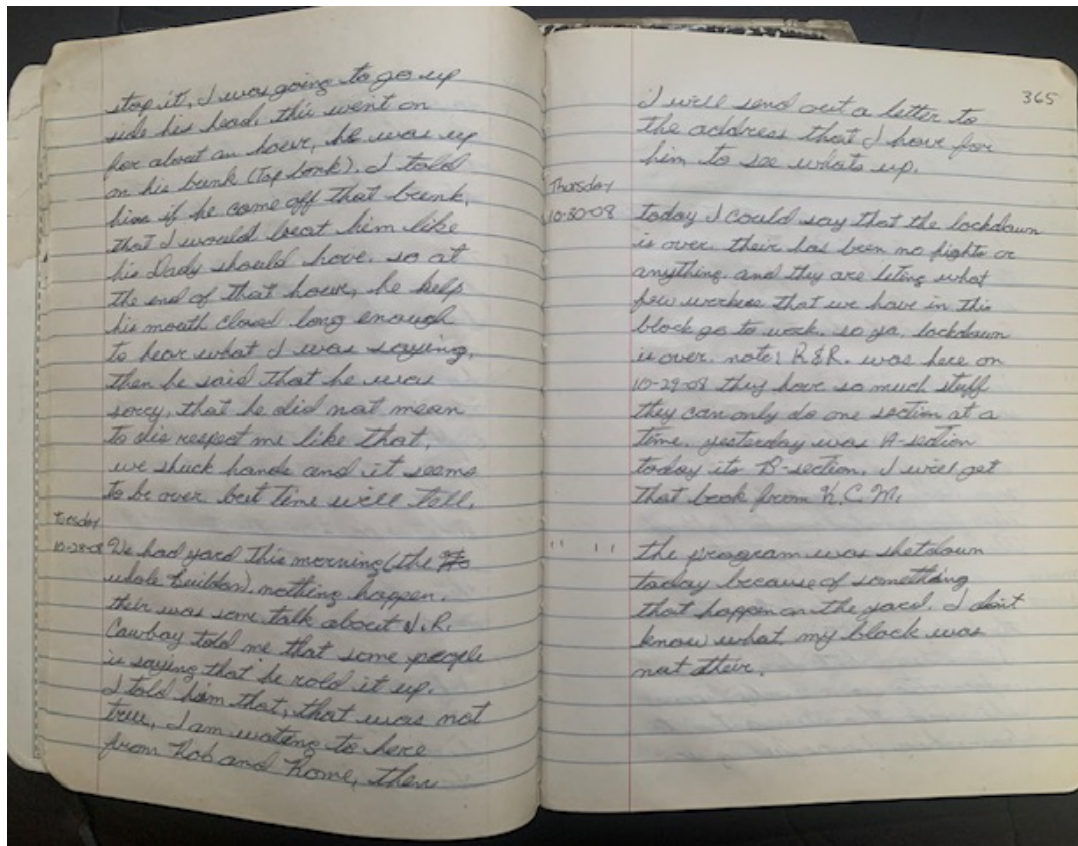 stop it, I was going to go up
side his head. this went on
for about an hour, he was up
on his bunk (Top bonk). I told
him if he come off that bunk,
that I would beat him like
his Dady should have. so at
the end of that hour, he kelp
his mouth closed long enough
to hear what I was saying,
then he said that he was
sorry, that he did not mean
to dis respect me like that,
we shuck hands and it seems
to be over but time will tell.
Tuesday
10-28-08 We had yard this morning (the
whole Buildon), nothing happen.
their was some talk about J.R.
Cawboy told me that some people
is saying that he rold it up.
I told him that, that was not
true, I am wating to here
from Rob and Rome, then
365
I will send out a letter to
the address that I have for
him to see whats up.
Thursday
10-30-08 today I could say that the lockdown
is over. their has been no fights or
anything. and they are leting what
few workers that we have in this
block go to work. so ya. lockdown
is over. note: R&R. was here on
10-29-08 they have so much stuff
they can only do one section at a
time. yesterday was A-section
today its B-section. I will get
that book from K.C.M.
" " the program was shetdown
today because of something
that happen on the yard. I don't
know what. my block was
not their.